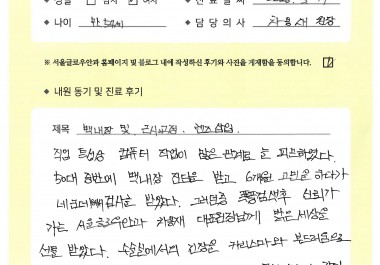 ◆ 나이
◆ 담당의사 차용재 원장
※ 서울글로우안과 홈페이지 및 블로그 내에 작성하신 후기와 사진을 게재함을 동의합니다.
◆ 내원 동기 및 진료 후기
제목 백내장 및 근시교정, 렌즈삽입
직업 특성상 컴퓨터 작업이 많은 관계로 눈 피로하였다.
50대 중반에 백내장 진단을 받고 6개월 고민을 하다가
검사를 받았다. 그러던중 폭풍검색후 신뢰가
가는 서울글로우안과 차용재 대표원장님께 밝은 세상을
선물 받았다. 수술실에서의 긴장은 카리스마와 부드러움으로